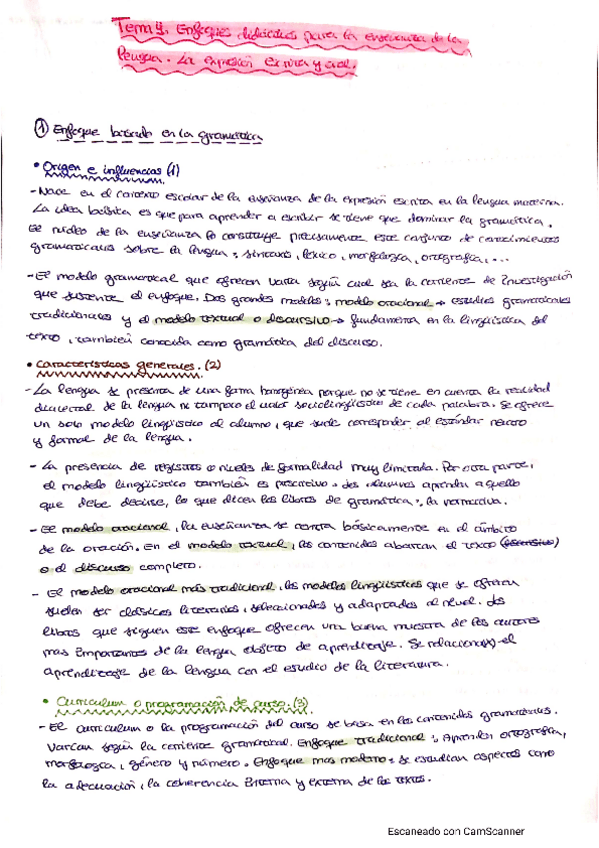 Tema 4. Enfoques didácticos para la enseñanza de la
lengua. La expresión escrita y oral.
① Enfoque basado en la gramática
• Origen e influencias (1)
- Nace en el contexto escolar de la enseñanza de la expresión escrita en la lengua materna.
La idea básica es que para aprender a escribir se tiene que dominar la gramática.
El núcleo de la enseñanza lo constituye precisamente este conjunto de conocimientos
gramaticales sobre la lengua: sintaxis, léxico, morfología, ortografía,...
- El modelo gramatical que ofrecen varía según cual sea la corriente de investigación
que sustente el enfoque. Dos grandes modelos: modelo oracional → estudios gramaticales
tradicionales y el modelo textual o discursivo → fundamenta en la lingüística del
texto, también conocida como gramática del discurso.
• Características generales. (2)
- La lengua se presenta de una forma homogénea porque no se tiene en cuenta la realidad
dialectal de la lengua ni tampoco el valor sociolingüístico de cada palabra. Se ofrece
un solo modelo lingüístico al alumno, que suele corresponder al estándar neutro
y formal de la lengua.
- La presencia de registros o niveles de formalidad muy limitada. Por otra parte,
el modelo lingüístico también es prescriptivo: los alumnos aprenden aquello
que debe decirse, lo que dicen los libros de gramática, la normativa.
- El modelo oracional, la enseñanza se centra básicamente en el ámbito
de la oración. En el modelo textual, los contenidos abarcan el texto (discursivo)
o el discurso completo.
- El modelo oracional más tradicional, los modelos lingüísticos que se ofrecen
suelen ser clásicos literarios, seleccionados y adaptados al nivel. Los
libros que siguen este enfoque ofrecen una buena muestra de los autores
mas importantes de la lengua objeto de aprendizaje. Se relaciona el
aprendizaje de la lengua con el estudio de la literatura.
• Curriculum o programación de curso. (3)
- El curriculum o la programación del curso se basa en los contenidos gramaticales.
Varían según la corriente gramatical. Enfoque tradicional: Aprenden ortografía,
morfología, género y número. Enfoque mas moderno: se estudian aspectos como
la adecuación, la coherencia interna y externa de los textos.
Escaneado con CamScanner